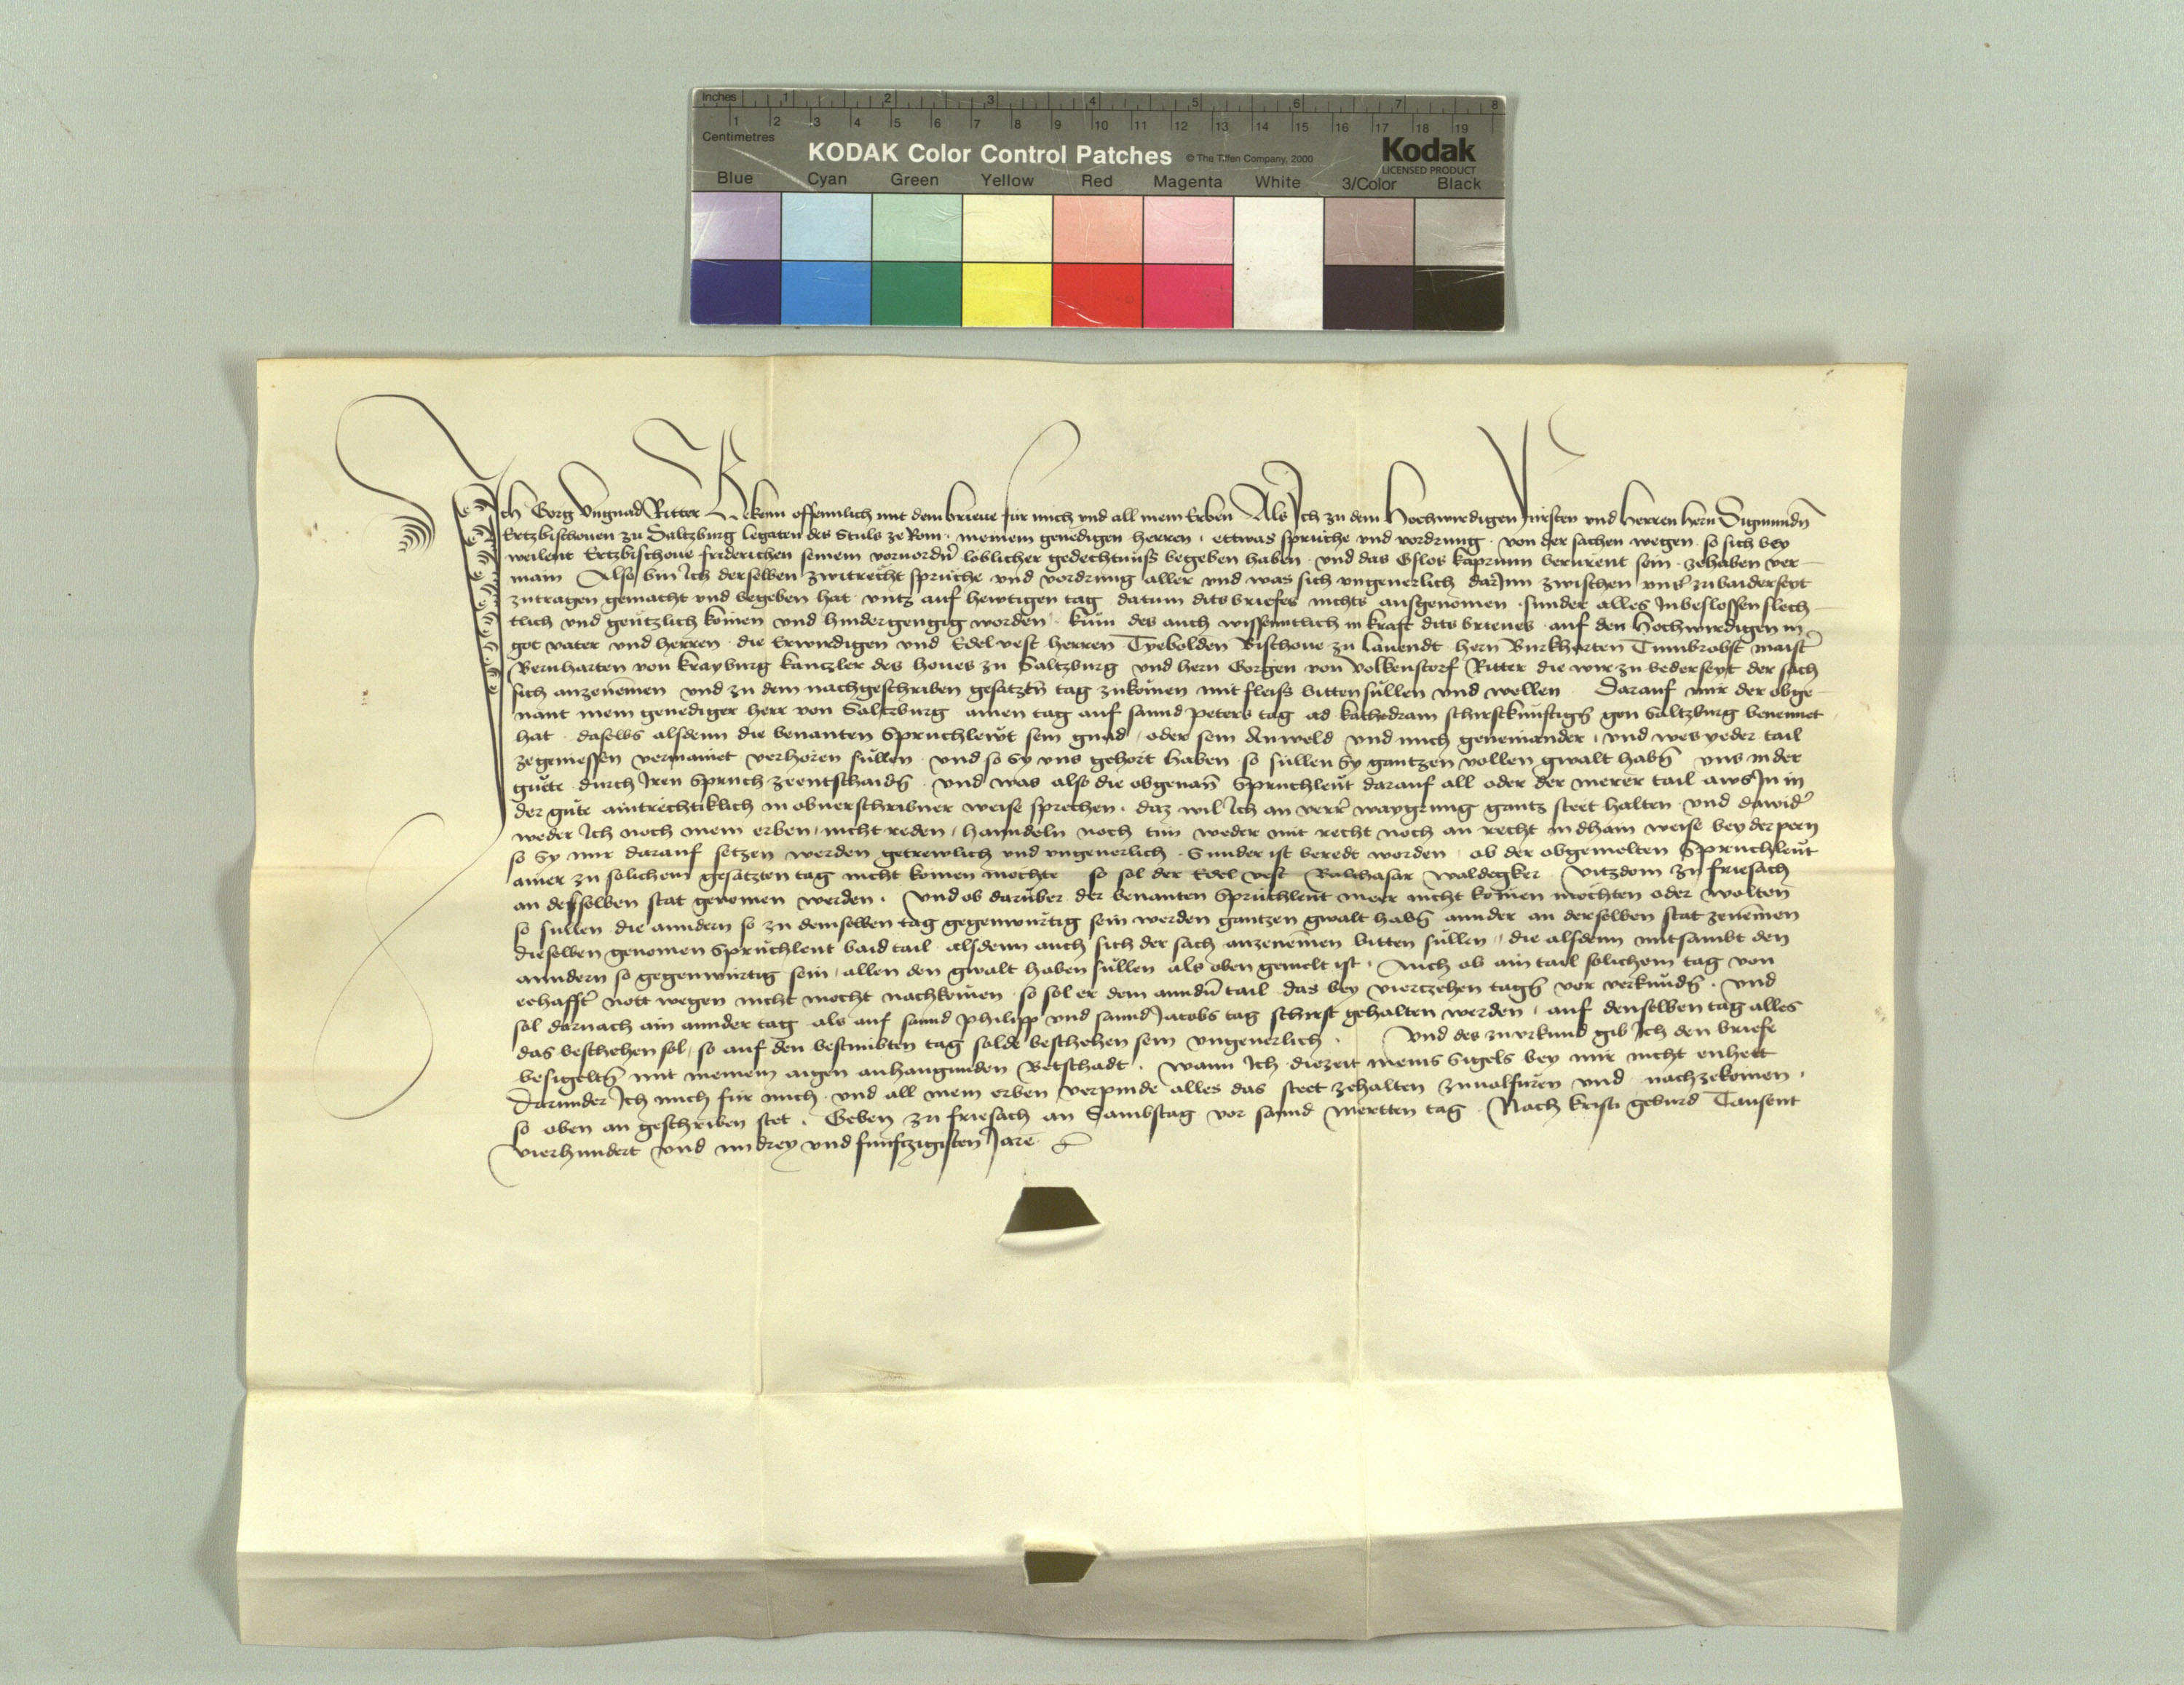 Inches 1 2 3 4 5 6 7 8
1 2 3 4 5 6 7 8 9 10 11 12 13 14 15 16 17 18 19
Centimetres
KODAK Color Control Patches © The Tiffen Company, 2000 Kodak
LICENSED PRODUCT
Blue Cyan Green Yellow Red Magenta White 3/Color Black
Ich Gorg Vngnad Ritter Bekenn offennlich mit dem brieue fur mich vnd all mein Erben Als Ich zu dem Hochwirdigen Fürsten vnd Herren hern Sigmundn̄
Ertzbischouen zu Saltzburg legaten des Stuls ze Rom, meinem genedigen herren, ettwas sprüche vnd vordrung von der sachen wegen so sich bey
weilent Ertzbischoue friderichen seinem voruordn̄ loblicher gedechtnüss begeben haben vnd das Gslos kaprunn berürent sein zehaben ver-
main Also bin Ich derselben zwitrecht sprüche vnd vordrung aller vnd was sich vngeuerlich darInn zwischen vnser zu baiderseyt
zutragen gemacht vnd begeben hat vntz auf hewtigen tag datum dits briefes nichts ausgenomen sunder alles Inbeslossen slech-
tlich vnd gentzlich komen vnd hindergengig worden kum des auch wissenntlich in kraft dits brieues auf den Hochwirdigen in
got vater vnd herren die Erwirdigen vnd Edel vest herren Tyebolden Bischoue zu Lauendt hern Burkharten Tumbrobst maister
Bernharten von krayburg kanczler des houes zu Saltzburg vnd hern Gorgen von Volkenstorf Ritter die wir zu bederseyt der sach
sich anzenemen vnd zu dem nachgeschriben gesatztn̄ tag zukomen mit fleiss bitten süllen vnd wellen Darauf mir der obge-
nant mein genediger herr von Saltzburg ainen tag auf sannd Peters tag ad kathedram schirstkünftigen gen Saltzburg benennet
hat daselbs alsdenn die benanten Spruchlewt sein gnad, oder sein Anweld vnd mich geneinander, vnd wes yeder tail
zegeniessen vermainet verhoren süllen vnd so Sy vns gehort haben so süllen Sy gantzen vollen gwalt haben vns in der
guete durch Iren Spruch zeentschaiden vnd was also die obgenan̄ Spruchleut darauf all oder der merer tail aws In in
der güte aintrechtiklich in obuerschribner weise sprechen, daz wil Ich an verr waygrung gantz steet halten vnd dawider
weder Ich noch mein erben, nicht reden, hanndeln noch tun weder mit recht noch an recht in dhain weise bey der peen
so Sy mir darauf setzen werden getrewlich vnd vngeuerlich Sunder ist beredt worden ob der obgemelten Spruchleut
ainer zu solichem gesatzten tag nicht komen mochte so sol der Edel vest Balthasar Waldegker Vitzdom zu friesach
an desselben stat genomen werden. Vnd ob daruber der benanten Spruchleut meer nicht komen mochten oder wolten
so süllen die anndern so zu demselben tag gegenwürtig sein werden gantzen gwalt haben annder an derselben stat zenemen
dieselben genomen Spruchleut baid tail alsdenn auch sich der sach anzenemen bitten süllen, die alsdenn mitsambt den
anndern so gegenwürtig sein, allen den gwalt haben süllen als oben gemelt ist. Auch ob ain tail solichem tag von
eehaffter nott wegen nicht mocht nachkomen so sol er dem anndn̄ tail das bey vierczehen tagen vor verkünden. vnd
sol darnach ain annder tag als auf sannd Philipp vnd sannd Jacobs tag schirst gehalten werden, auf denselben tag alles
das beschehen sol, so auf den bestimbten tag solde beschehen sein vngeuerlich. Vnd des zu vrkund gib Ich den briefe
besigelten mit meinem aigen anhangunden Betschadt. Wann Ich diezeit meins Sigels bey mir nicht enhett
Darunder Ich mich für mich vnd all mein erben verpinde alles das steet zehalten zuuolfüren vnd nachzekomen,
so oben an geschriben stet. Geben zu friesach an Sambstag vor sannd Mertten tag. Nach kristi geburd Tausent
vierhundert vnd im drey vnd fünfzigisten Jare